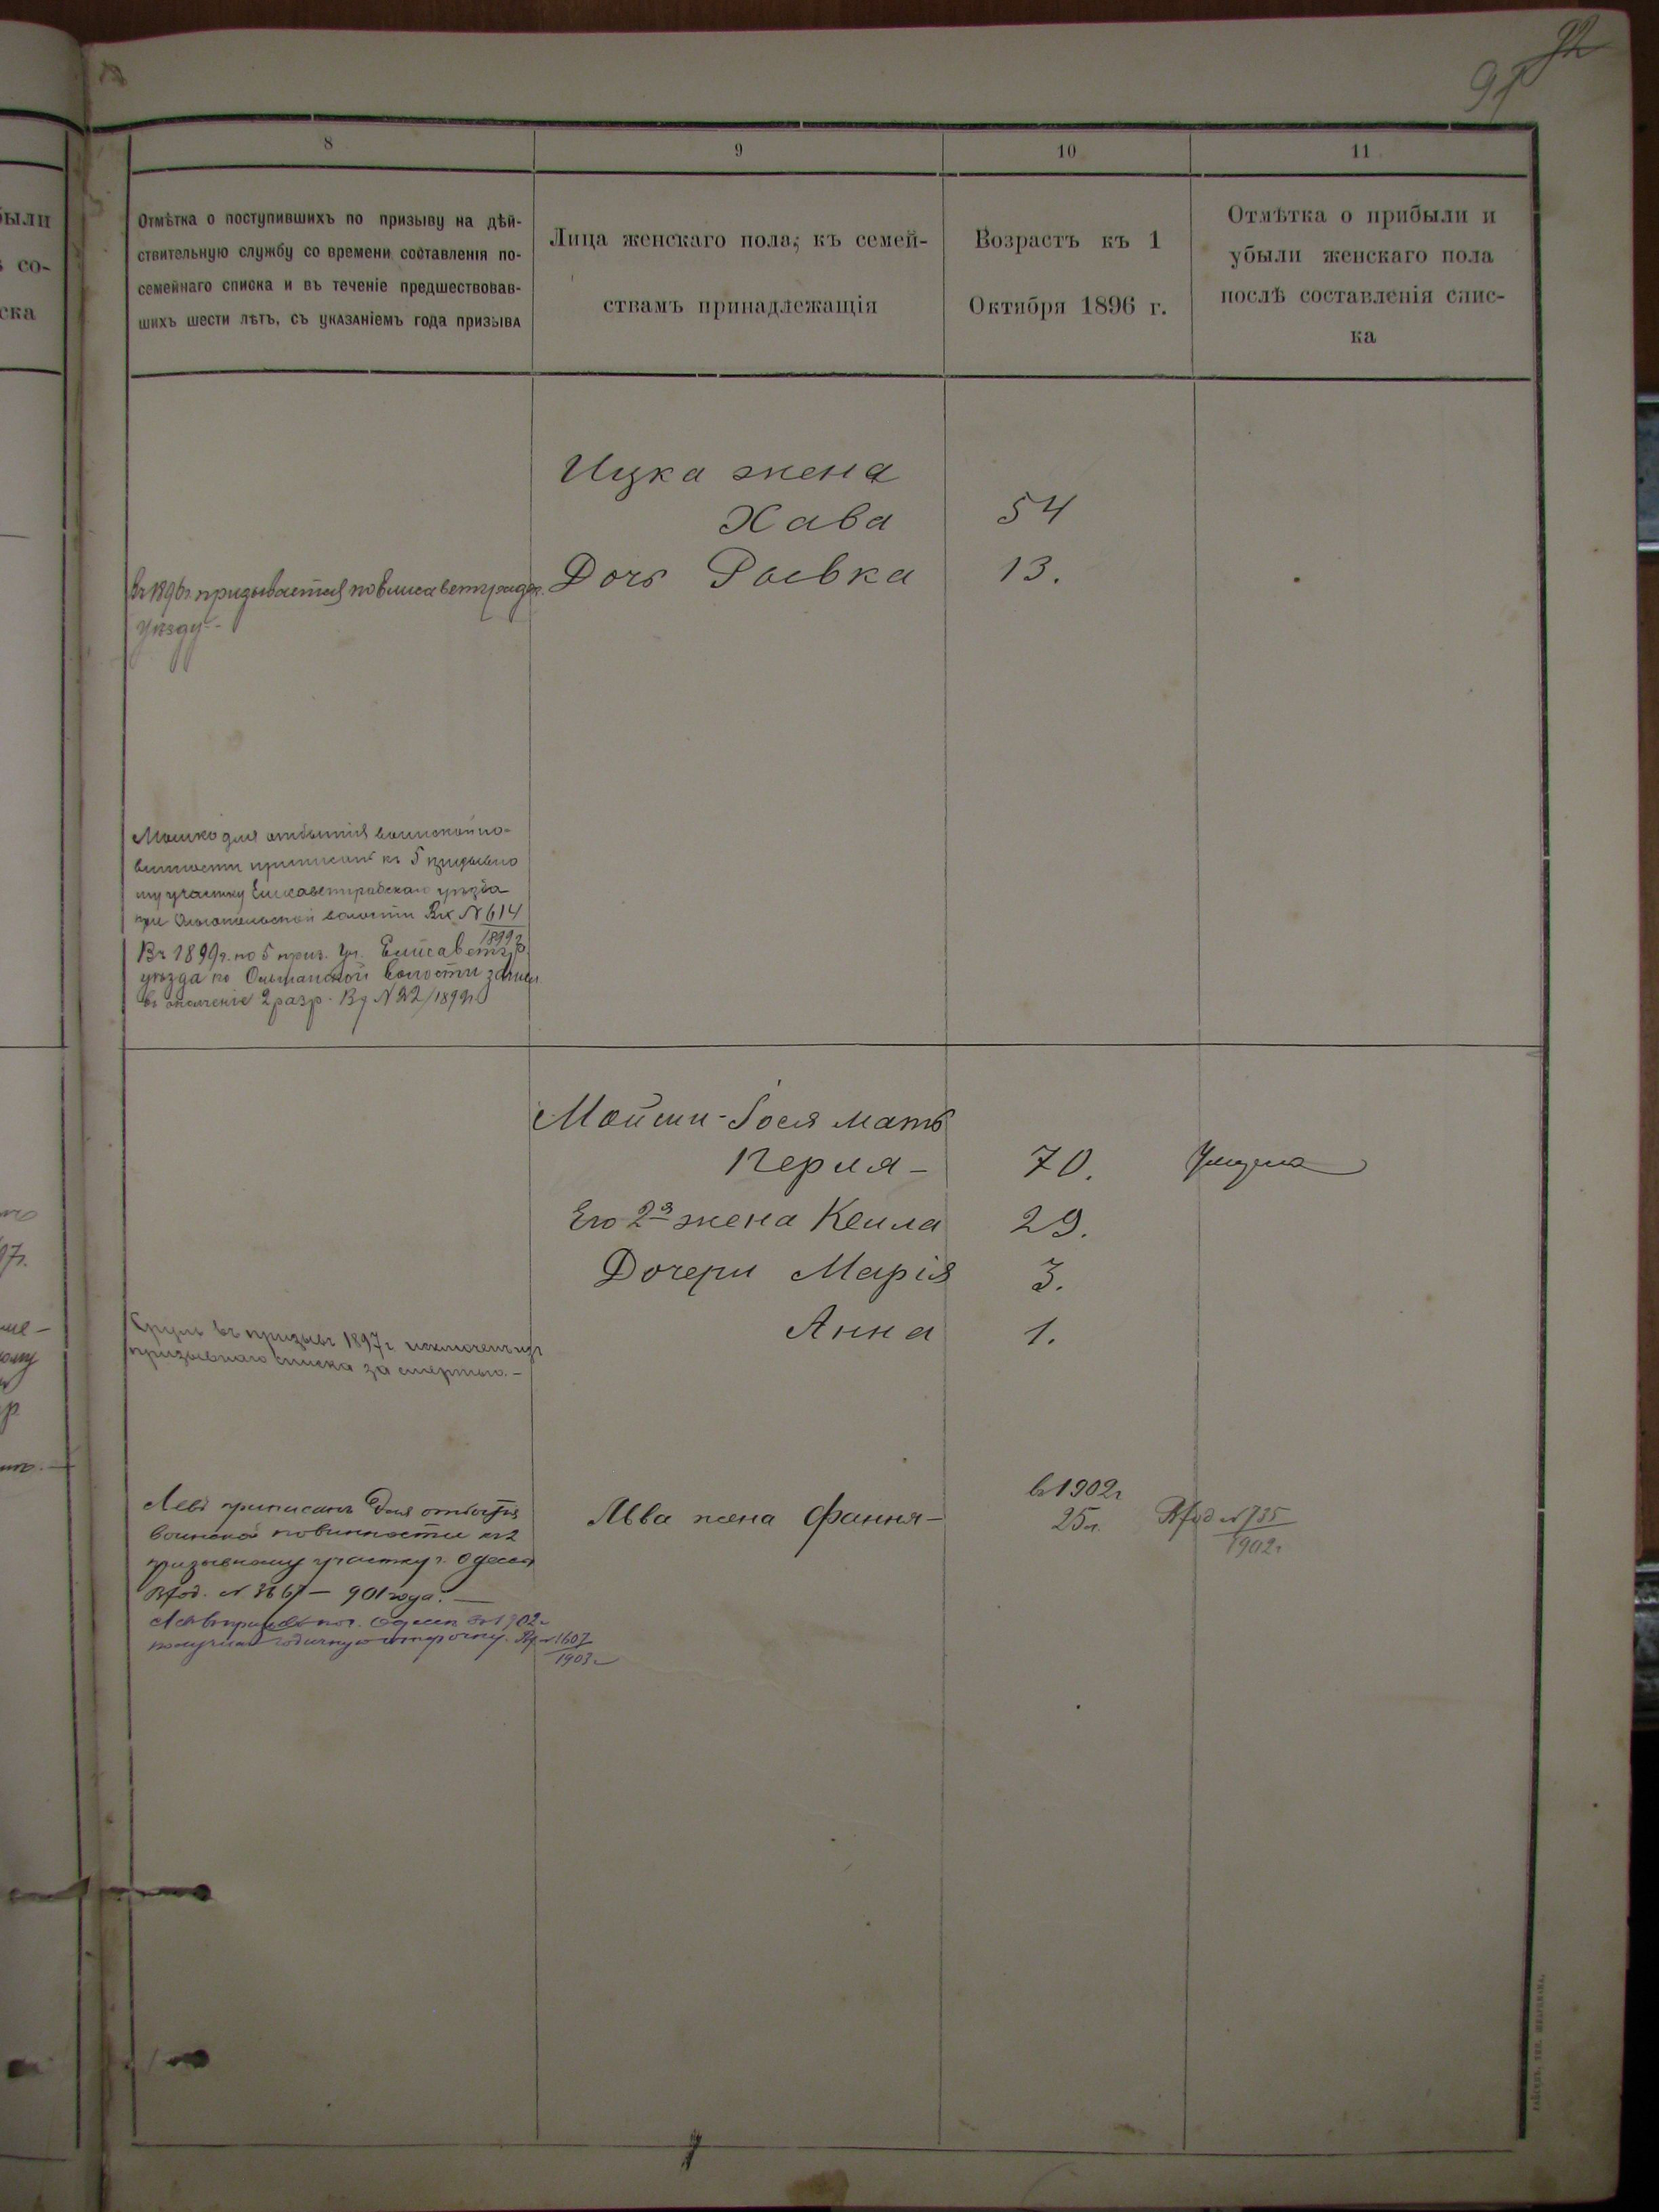 92
91
8
9
10
11
Отмѣтка о поступившихъ по призыву на дѣй-
ствительную службу со времени составленія по-
семейнаго списка и въ теченіе предшествовав-
шихъ шести лѣтъ, съ указаніемъ года призыва
Лица женскаго пола, къ семей-
ствамъ принадлежащія
Возрастъ къ 1
Октября 1896 г.
Отмѣтка о прибыли и
убыли женскаго пола
послѣ составленія спис-
ка
Ицка жена
Хава 54
Дочь Рывка 13.
Въ 1896 г призывается по Елисаветград.
уѣзду
Мошко для отбытія воинской по-
винности приписанъ къ 5 призывно
му участку Елисаветградскаго уѣзда
при волости Вх N 614
1899 г
Въ 1899 г. по 5 приз. уч. Елисаветгр
уѣзда по Ольшанской волости зачисл
въ ополченіе 2 разр. Вх N 22/1899 г
Мойши-Іося мать
Перля- 70. Умерла
Его 2я жена Кейла 29.
Дочери Марія 3.
Анна 1.
Сруль въ призывъ 1897 г исключенъ изъ
призывнаго списка за смертью.-
Левъ приписанъ для отбытія
воинской повинности къ 2
призывному участку г. Одессы
Вход. N 3667 - 901 года.
Левъ по г. Одессѣ въ 1902 г
получилъ годичную отсрочку. Вх N 1607
1903 г
Льва жена Фання-
въ 1902 г
25 л.
Вход N 735
1902 г